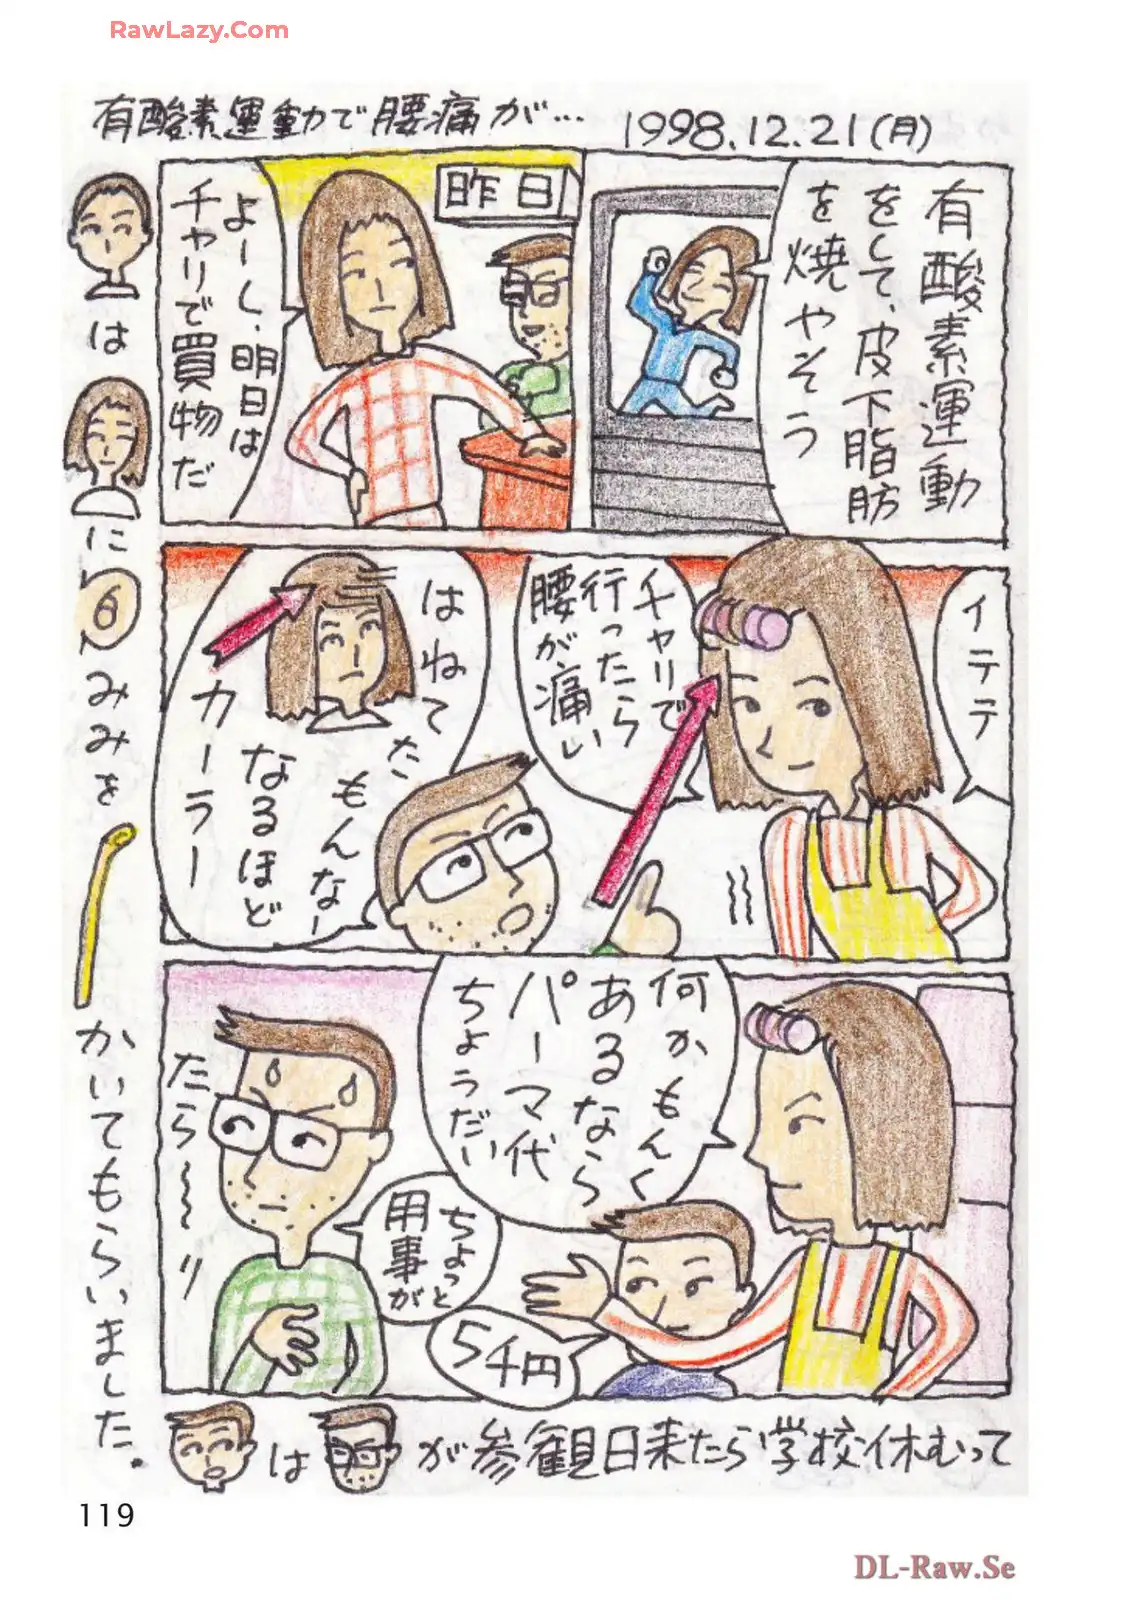 RawLazy.Com
有酸素運動で腰痛が… 1998.12.21(月)
有酸素運動
をして、皮下脂肪
を焼やそう
昨日
よーし、明日は
チャリで買物だ
イテテ
チャリで
行ったら
腰が痛い
はねてた
もんなー
なるほど
カーラー
何かもんく
あるなら
パーマ代
ちょうだい
5千円
ちょっと
用事が
たら〜〜リ
は
に
6
みみを
かいてもらいました。
は
が参観日来たら学校休むって
119
DL-Raw.Se